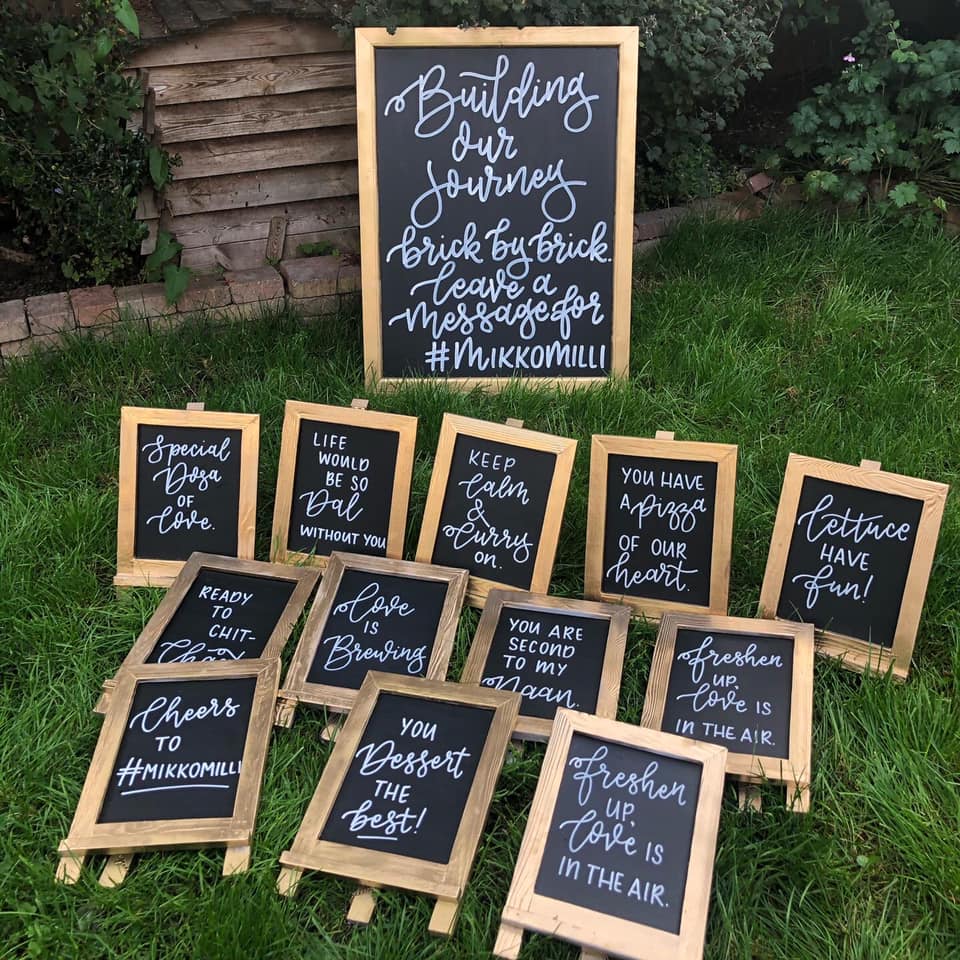 Building
Our
Journey
brick by brick.
Leave a
message for
#MIKKOMILLI
Special
Dosa
OF
Love.
LIFE
WOULD
BE SO
Dal
WITHOUT YOU
KEEP
Calm
&
Curry
ON.
YOU HAVE
A Pizza
OF OUR
heart.
Lettuce
HAVE
fun!
READY
TO
CHIT-
Chaat
Love
IS
Brewing
YOU ARE
SECOND
TO MY
Naan.
freshen
UP,
Love IS
IN THE AIR.
Cheers
TO
#MIKKOMILLI
YOU
Dessert
THE
best!
freshen
UP,
Love IS
IN THE AIR.